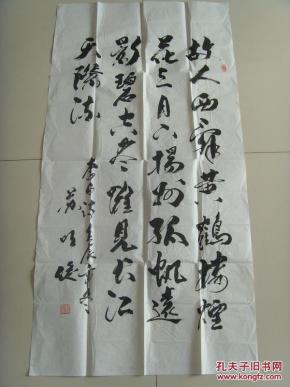 故人西辞黄鹤楼烟
花三月下扬州孤帆远
影碧空尽唯见长江
天际流
李白诗
孔夫子旧书网